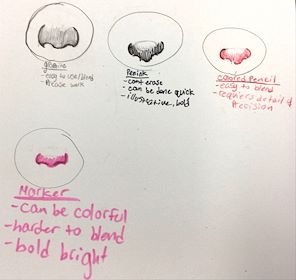 - easy to use/blend
Penink
- cant erase
- can be done quick
- illustrative, bold
Colored Pencil
- easy to blend
- requiers detail &
Precision
Marker
- can be colorful
- harder to blend
- bold bright